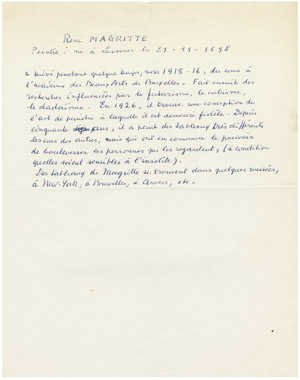 René MAGRITTE
Peintre : né à Lessines le 21-11-1898
a suivi pendant quelque temps, vers 1915-16, des cours à
l'académie des Beaux-Arts de Bruxelles. Fait ensuite des
recherches influencées par le futurisme, le cubisme,
le dadaïsme. En 1926, il trouve une conception de
l'art de peindre à laquelle il est demeuré fidèle. Depuis
cinquante ans, il a peint des tableaux très différents
les uns des autres, mais qui ont en commun le pouvoir
de bouleverser les personnes qui les regardent, (à condition
qu'elles soient sensibles à l'insolite).
Des tableaux de Magritte se trouvent dans quelques musées,
à New-York, à Bruxelles, à Anvers, etc-